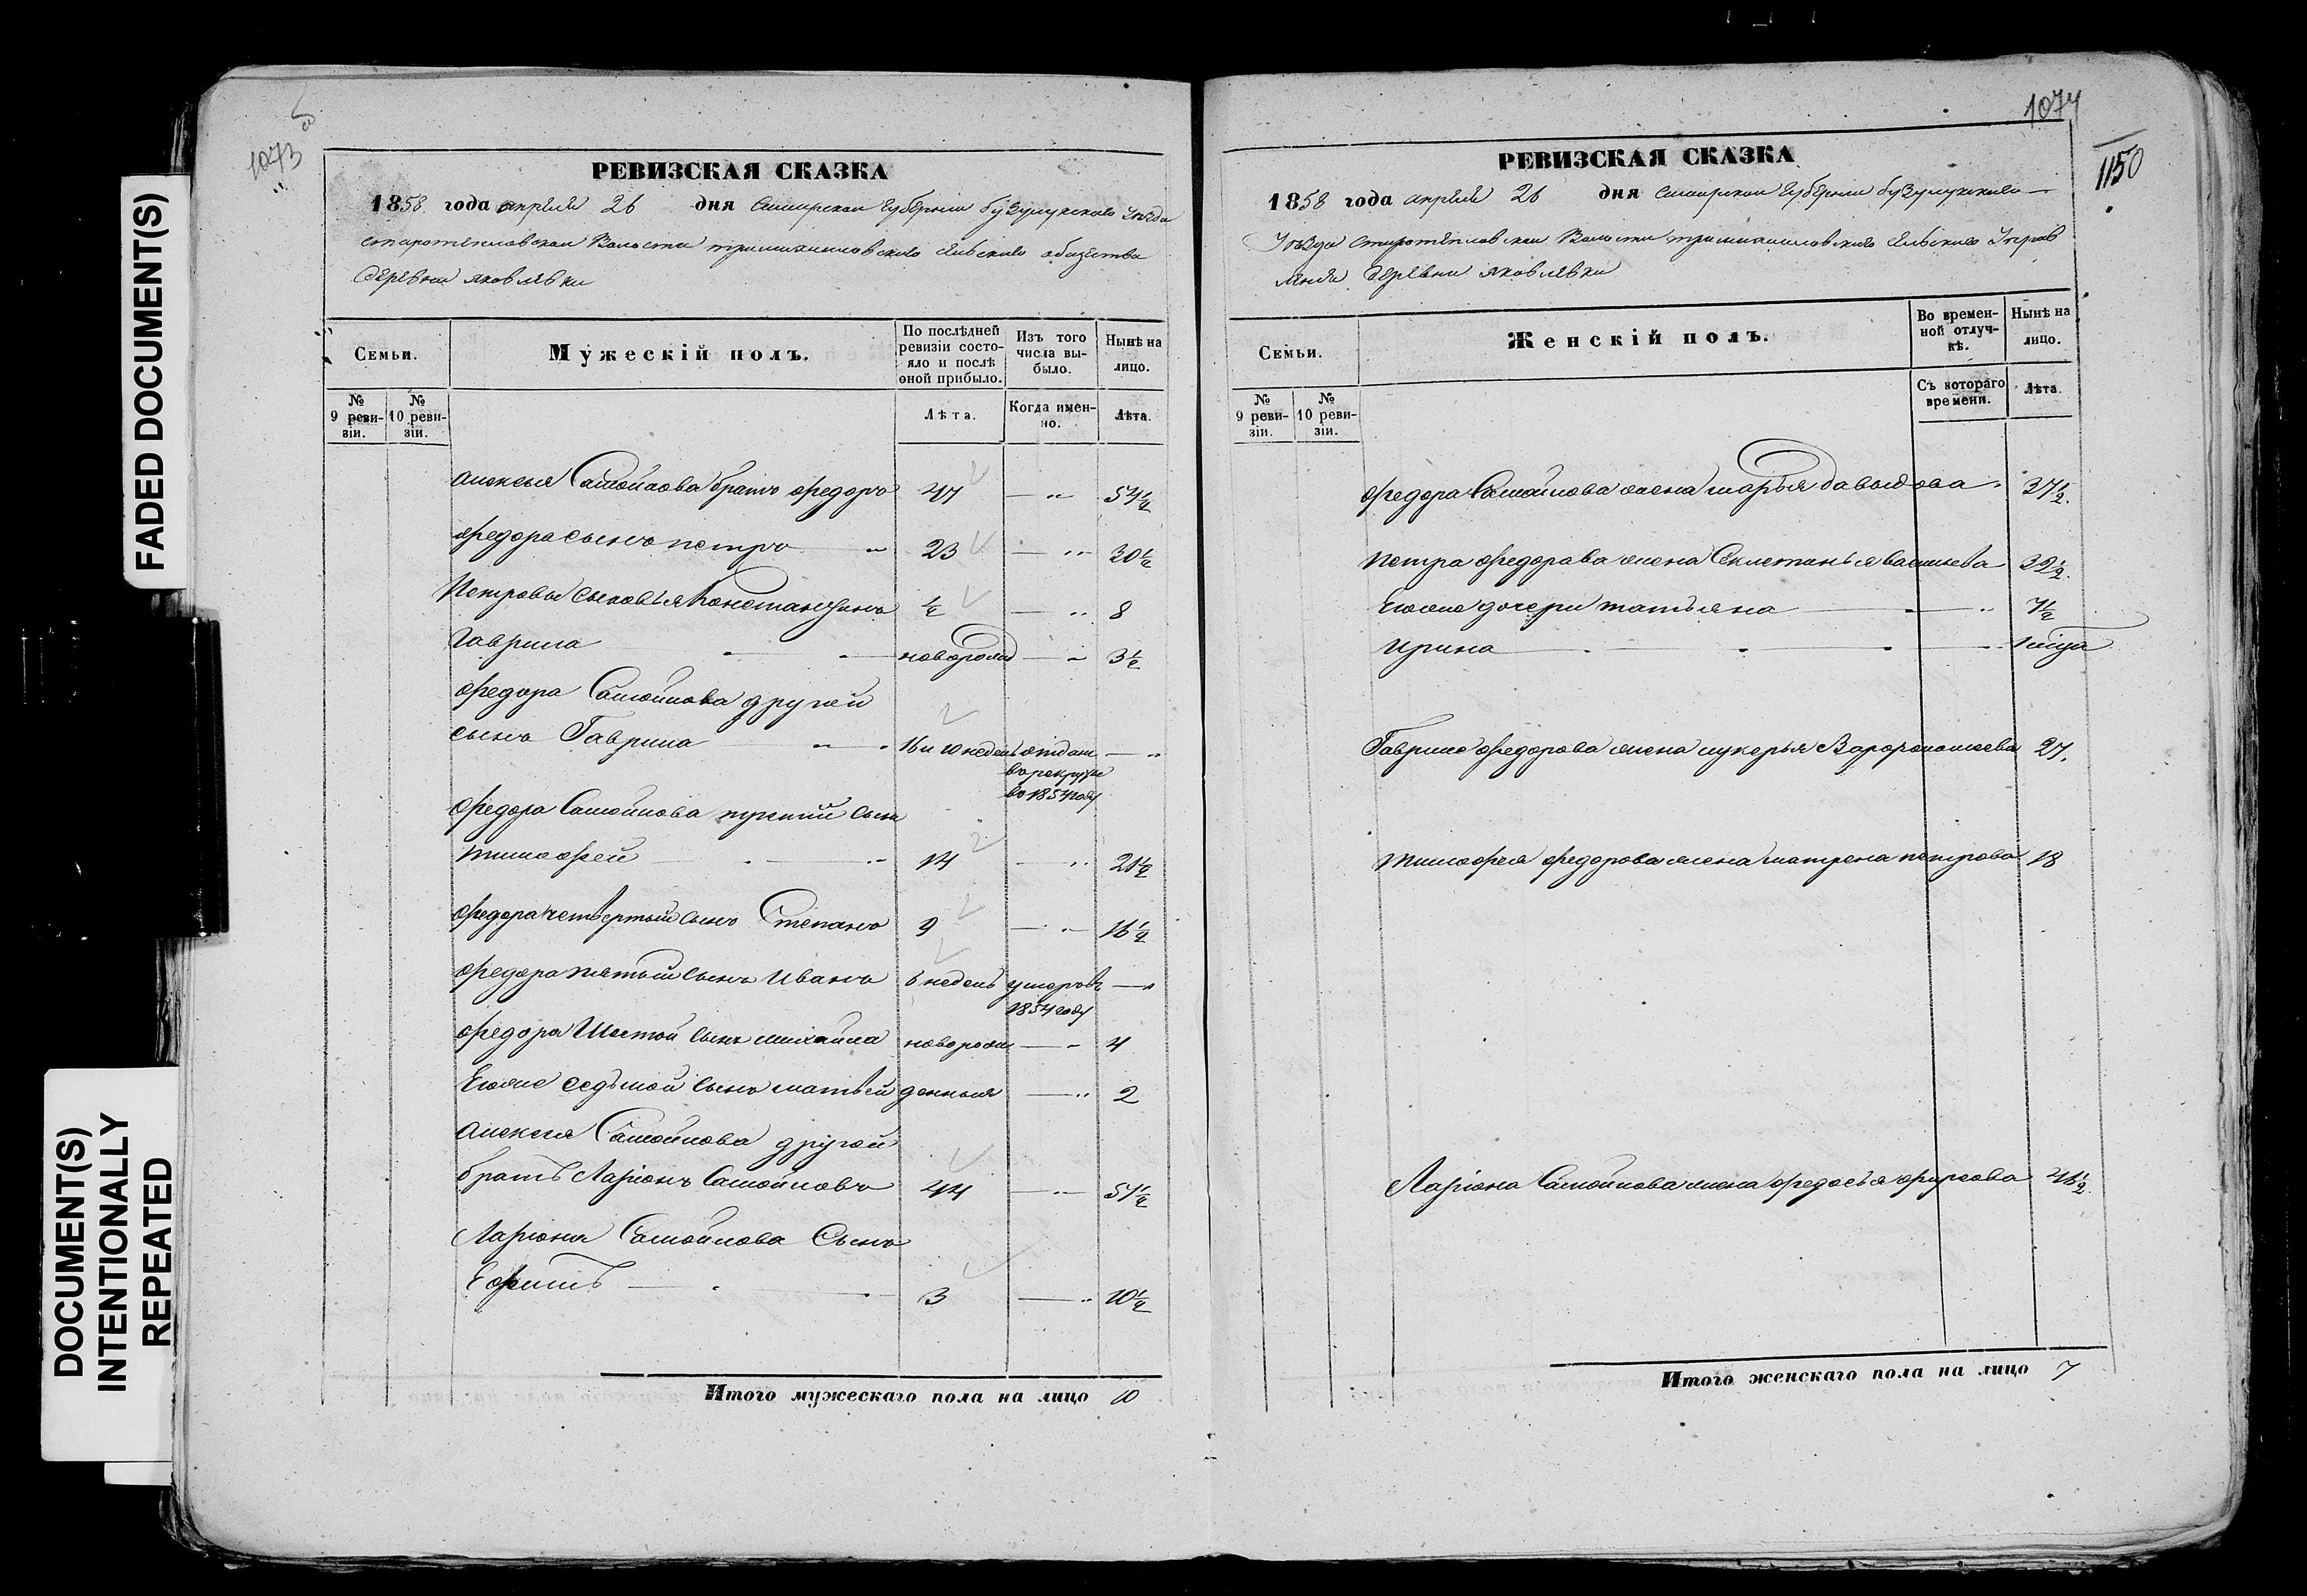 FADED DOCUMENT(S)
DOCUMENT(S)
INTENTIONALLY
REPEATED
1073
РЕВИЗСКАЯ СКАЗКА
1858 года апреля 26 дня Самарской губернии бузулукского уезда
старотепловской Волости сельского общества
деревни яковлевки
Семьи.
Мужескій полъ.
По послѣдней ревизіи состояло и послѣ оной прибыло.
Изъ того числа выбыло.
Нынѣ на лицо.
№ 9 ревизіи.
№ 10 ревизіи.
Лѣта.
Когда именно.
Лѣта.
алексея Самойлова братъ федоръ 47 — " 54½
федора сынъ петръ " 23 — " 30½
Петровы сыновья Константинъ ½ — " 8
Гаврила новорожд — " 3½
федора Самойлова другой
сынъ Гаврила " 16 и 10 недель отдан — "
в рекруты
во 1854 году
федора Самойлова третий сынъ
тимофей 14 — " 21½
федора четвертый сынъ Степанъ 9 — " 16½
федора пятый сынъ иванъ 6 недель умеръ в — "
1854 году
федора Шестой сынъ михайла новорож — " 4
Егоже седьмой сынъ матвей денныя — " 2
алексея Самойлова другой
братъ Ларіонъ Самойловъ 44 — " 51½
Лариона Самойлова Сынъ
Ефимъ 3 — " 10½
Итого мужескаго пола на лицо 10
1074
1150
РЕВИЗСКАЯ СКАЗКА
1858 года апреля 26 дня Самарской губернии бузулукскаго
Уезда старотепловской Волости сельского Управ
ления деревни яковлевки
Семьи.
Женскій полъ.
Во временной отлучкѣ.
Нынѣ на лицо.
№ 9 ревизіи.
№ 10 ревизіи.
Съ котораго времени.
Лѣта.
федора Самойлова жена марья давыдова 37½
петра федорова жена Секлетинья васильева 32½
Егоже дочери татьяна " 7½
ирина 1 года
Гаврилы федорова жена лукерья 27
тимофея федорова жена матрена петрова 18
Ларіона Самойлова жена федосья фирсова 46½
Итого женскаго пола на лицо 7